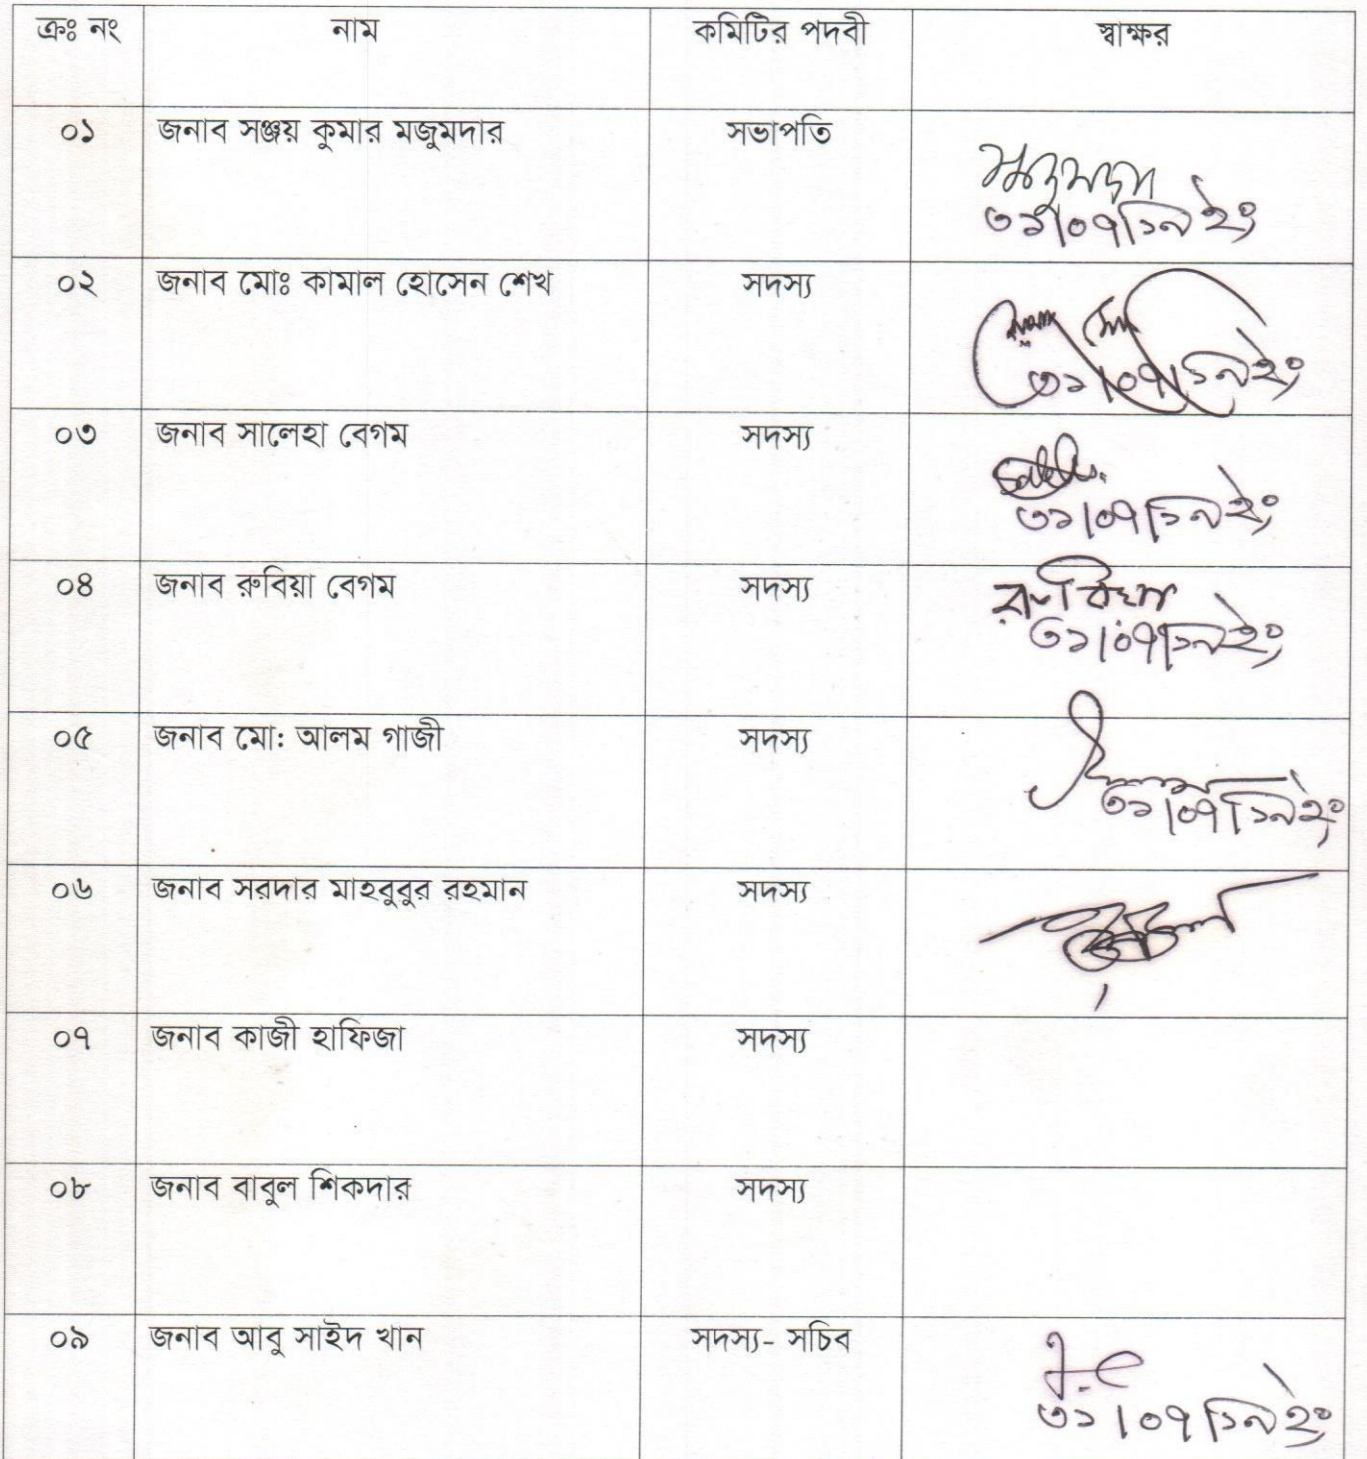 ক্রঃ নং নাম কমিটির পদবী স্বাক্ষর
০১ জনাব সঞ্জয় কুমার মজুমদার সভাপতি
৩১/০৭/১৯ ইং
০২ জনাব মোঃ কামাল হোসেন শেখ সদস্য
৩১/০৭/১৯ ইং
০৩ জনাব সালেহা বেগম সদস্য
৩১/০৭/১৯ ইং
০৪ জনাব রুবিয়া বেগম সদস্য রুবিয়া
৩১/০৭/১৯ ইং
০৫ জনাব মো: আলম গাজী সদস্য
৩১/০৭/১৯ ইং
০৬ জনাব সরদার মাহবুবুর রহমান সদস্য
০৭ জনাব কাজী হাফিজা সদস্য
০৮ জনাব বাবুল শিকদার সদস্য
০৯ জনাব আবু সাইদ খান সদস্য- সচিব
৩১/০৭/১৯ ইং